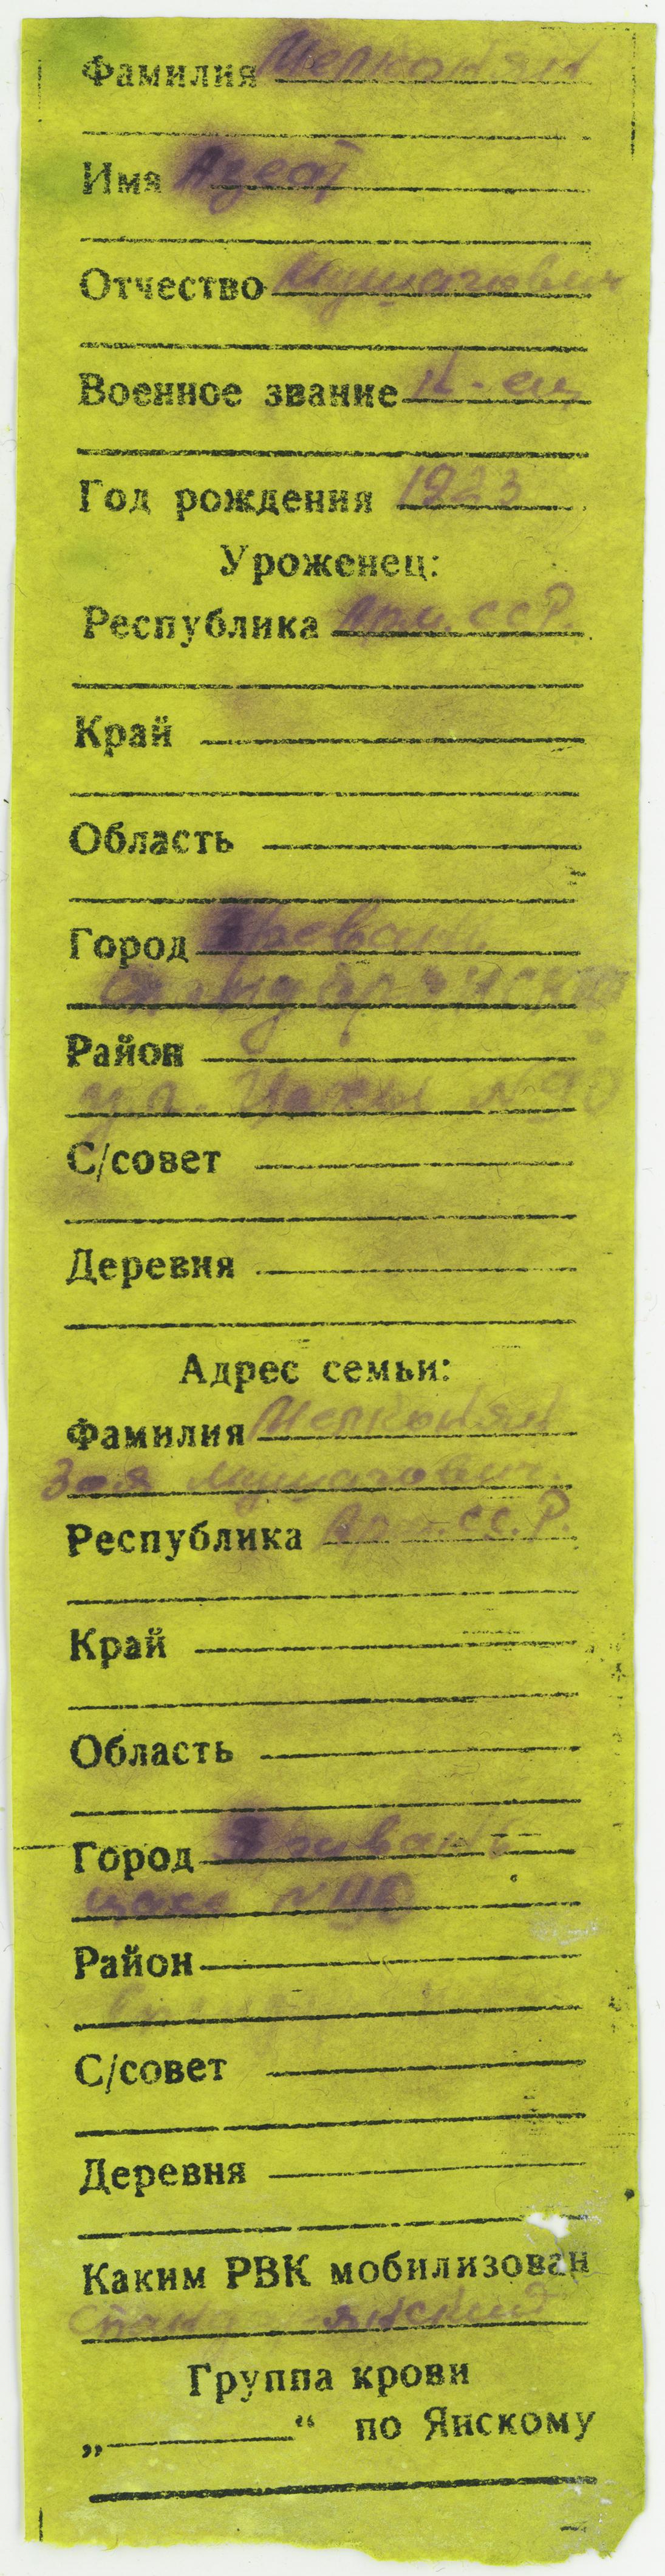 Фамилия Мелконян
Имя Азат
Отчество Мушагович
Военное звание к-ец
Год рождения 1923
Уроженец:
Республика Арм. ССР.
Край
Область
Город Ереван
Район
ул. №90
С/совет
Деревня
Адрес семьи:
Фамилия Мелконян
Зоя Мушагович
Республика Арм. СС.Р.
Край
Область
Город
№ 90
Район
С/совет
Деревня
Каким РВК мобилизован
Группа крови
„ “ по Янскому